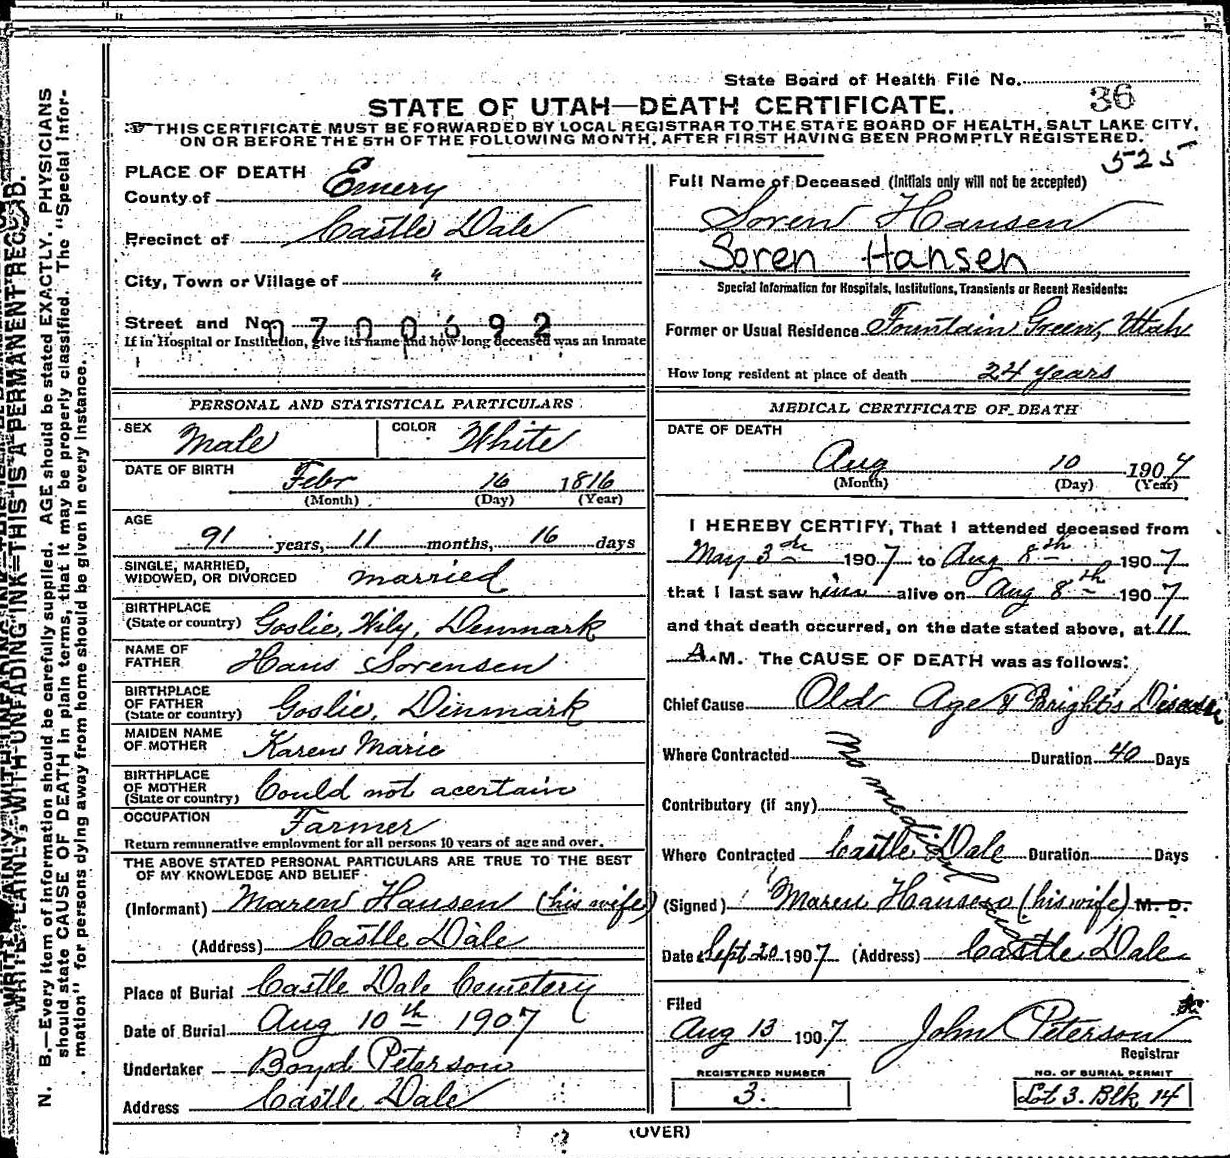 State Board of Health File No.
36
STATE OF UTAH—DEATH CERTIFICATE.
THIS CERTIFICATE MUST BE FORWARDED BY LOCAL REGISTRAR TO THE STATE BOARD OF HEALTH, SALT LAKE CITY,
ON OR BEFORE THE 5TH OF THE FOLLOWING MONTH, AFTER FIRST HAVING BEEN PROMPTLY REGISTERED.
525
PLACE OF DEATH
County of Emery
Precinct of Castle Dale
City, Town or Village of "
Street and No.
0700692
If in Hospital or Institution, give its name and how long deceased was an Inmate
PERSONAL AND STATISTICAL PARTICULARS
SEX Male COLOR White
DATE OF BIRTH Febr 16 1816
(Month) (Day) (Year)
AGE
91 years, 11 months, 16 days
SINGLE, MARRIED,
WIDOWED, OR DIVORCED married
BIRTHPLACE
(State or country) Goslie, Wily, Denmark
NAME OF
FATHER Hans Sorensen
BIRTHPLACE
OF FATHER
(State or country) Goslie, Dinmark
MAIDEN NAME
OF MOTHER Karen Marie
BIRTHPLACE
OF MOTHER
(State or country) Could not acertain
OCCUPATION Farmer
Return remunerative employment for all persons 10 years of age and over.
THE ABOVE STATED PERSONAL PARTICULARS ARE TRUE TO THE BEST
OF MY KNOWLEDGE AND BELIEF.
(Informant) Maren Hansen (his wife)
(Address) Castle Dale
Place of Burial Castle Dale Cemetery
Date of Burial Aug 10th 1907
Undertaker Boyd Peterson
Address Castle Dale
Full Name of Deceased (Initials only will not be accepted)
Soren Hansen
Soren Hansen
Special Information for Hospitals, Institutions, Transients or Recent Residents:
Former or Usual Residence Fountain Green, Utah
How long resident at place of death 24 years
MEDICAL CERTIFICATE OF DEATH
DATE OF DEATH
Aug 10 1907
(Month) (Day) (Year)
I HEREBY CERTIFY, That I attended deceased from
May 3th 1907 to Aug 8th 1907
that I last saw him alive on Aug 8th 1907
and that death occurred, on the date stated above, at 11
A.M. The CAUSE OF DEATH was as follows:
Chief Cause Old Age & Bright's Disease
Where Contracted Duration 40 Days
Contributory (if any)
Where Contracted Castle Dale Duration Days
No medical
(Signed) Maren Hansen (his wife) M. D.
Date Sept 20 1907 (Address) Castle Dale
Filed
Aug 13 1907 John Peterson
Registrar
REGISTERED NUMBER
3.
NO. OF BURIAL PERMIT
Lot 3. Blk 14
(OVER)
WRITE PLAINLY, WITH UNFADING INK—THIS IS A PERMANENT RECORD.
N. B.—Every item of information should be carefully supplied. AGE should be stated EXACTLY. PHYSICIANS
should state CAUSE OF DEATH in plain terms, that it may be properly classified. The "Special Infor-
mation" for persons dying away from home should be given in every instance.